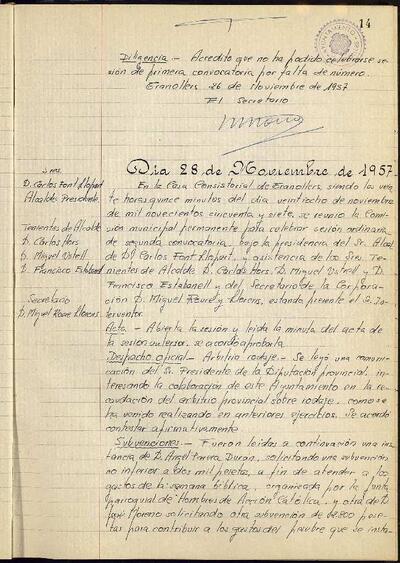 14
Diligencia.- Acredito que no ha podido celebrarse se-
sión de primera convocatoria por falta de número.
Granollers 26 de Noviembre de 1957
El Secretario
Día 28 de Noviembre de 1957
Sres.
D. Carlos Font Llopart
Alcalde Presidente.
Tenientes de Alcalde
D. Carlos Hors
D. Miguel Vstell
D. Francisco Estabanell
Secretario
D. Miguel Roure Llorens
En la Casa Consistorial de Granollers, siendo las vein-
te horas quince minutos del día veintiocho de noviembre
de mil novecientos cincuenta y siete, se reunió la Comi-
sión municipal permanente para celebrar sesión ordinaria
de segunda convocatoria, bajo la presidencia del Sr. Alcal-
de D. Carlos Font Llopart, y asistencia de los Sres. Te-
nientes de Alcalde D. Carlos Hors, D. Miguel Vstrell y D.
Francisco Estabanell y del Secretario de la Corpora-
ción D. Miguel Roure y Llorens, estando presente el Sr. In-
terventor.
Acta.- Abierta la sesión y leída la minuta del acta de
la sesión anterior, se acordó aprobarla.
Despacho oficial.- Arbitrio rodaje.- Se leyó una comuni-
cación del Sr. Presidente de la Diputación provincial, in-
teresando la colaboración de este Ayuntamiento en la re-
caudación del arbitrio provincial sobre rodaje, como se
ha venido realizando en anteriores ejercicios. Se acordó
contestar afirmativamente.
Subvenciones.- Fueron leídas a continuación una ins-
tancia de D. Angel Durán, solicitando una subvención
no inferior a dos mil pesetas, a fin de atender a los
gastos de la semana bíblica, organizada por la Junta
parroquial de Hombres de Acción Católica, y otra de D.
José Moreno solicitando otra subvención de pese-
tas para contribuir a los gastos del pesebre que se insta-